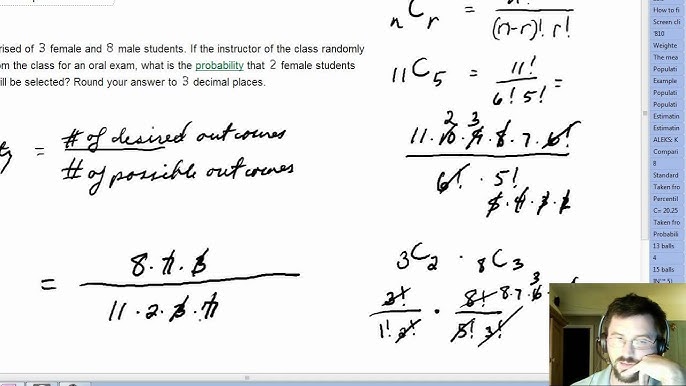 rised of 3 female and 8 male students. If the instructor of the class randomly
om the class for an oral exam, what is the probability that 2 female students
ill be selected? Round your answer to 3 decimal places.
= # of desired outcomes
# of possible outcomes
= 8 · 7 · 3
11 · 2 · 3 · 7
nCr = n!
(n-r)! r!
11C5 = 11! =
6! 5!
2 3
11 · 10 · 9 · 8 · 7 · 6!
6! · 5!
5 · 4 · 3 · 2
3C2 · 8C3
3! · 8! 8·7·6
3
1! 2! 5! 3!
How to fi
Screen cli
'810
Weighte
The mea
Populati
Example
Populati
Populati
Estimatin
Estimatin
ALEKS: K
Compari
8
Standard
Taken fro
Percentil
C= 20.25
Taken fro
Probabili
13 balls
4
15 balls